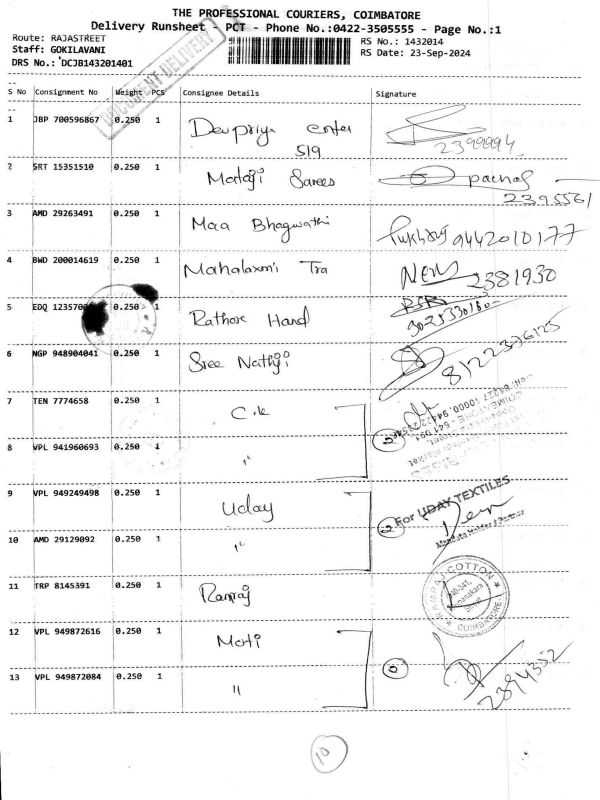 THE PROFESSIONAL COURIERS, COIMBATORE
Delivery Runsheet - PCT - Phone No.:0422-3505555 - Page No.:1
Route: RAJASTREET
Staff: GOKILAVANI
DRS No.: DCJB143201401
RS No.: 1432014
RS Date: 23-Sep-2024
DOCUMENT DELIVERY
S No Consignment No Weight PCS Consignee Details Signature
1 JBP 700596867 0.250 1 Devpriya enter
519
2399994
2 SRT 15351510 0.250 1 Mataji Sarees
2395561
3 AMD 29263491 0.250 1 Maa Bhagwathi 9442010177
4 BWD 200014619 0.250 1 Mahalaxmi Tra 2381930
5 EDQ 0.250 1 Rathore Hand
6 NGP 948904041 0.250 1 Sree Nathji 8122376125
7 TEN 7774658 0.250 1 C.k
2
8 VPL 941960693 0.250 1 "
9 VPL 949249498 0.250 1 Uday
For UDAY TEXTILES
2
10 AMD 29129092 0.250 1 "
11 TRP 8145391 0.250 1 Ramraj
COTTON
COIMBATORE
12 VPL 949872616 0.250 1 Moti
2394352
13 VPL 949872084 0.250 1 "
10